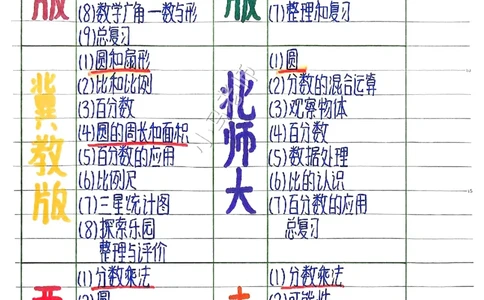 版
(8)数学广角—数与形
(9)总复习
版
(7)整理和复习
冀教版
(1)圆和扇形
(2)比和比例
(3)百分数
(4)圆的周长和面积
(5)百分数的应用
(6)比例尺
(7)三星统计图
(8)探索乐园
整理与评价
北师大
(1)圆
(2)分数的混合运算
(3)观察物体
(4)百分数
(5)数据处理
(6)比的认识
(7)百分数的应用
总复习
(1)分数乘法
(2)圆
(1)分数乘法
(2)可能性